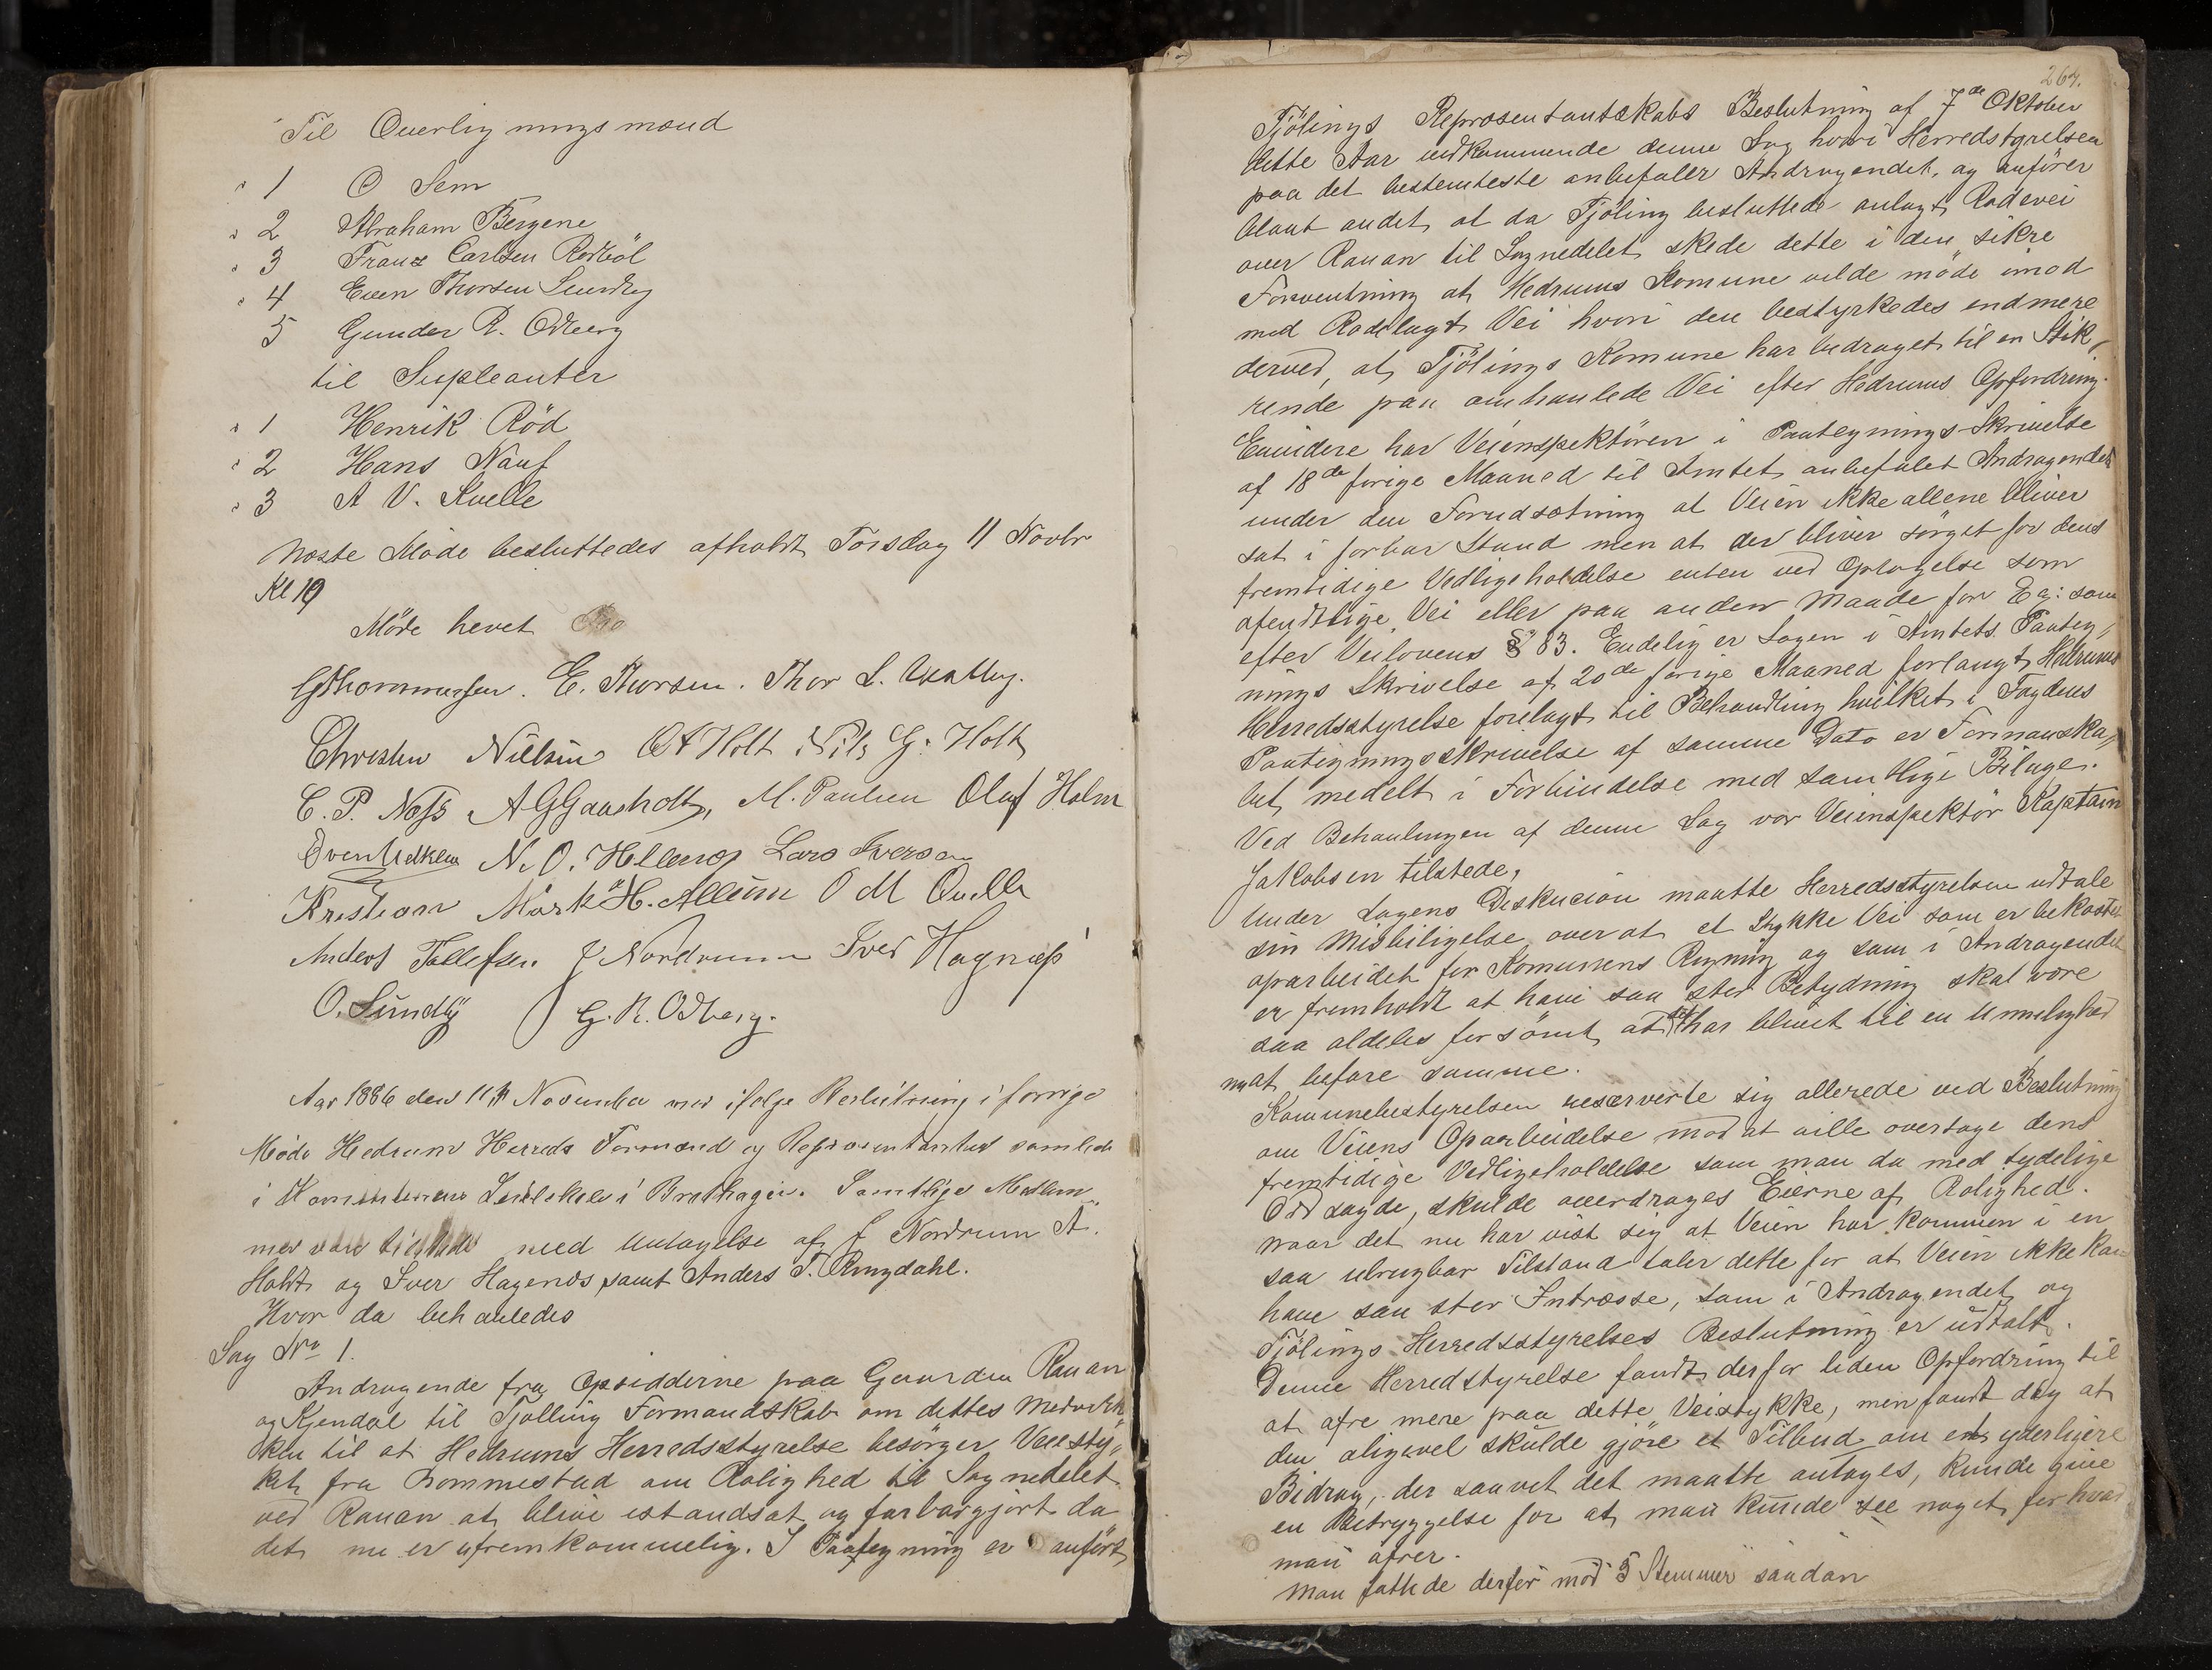 Til Overligningsmænd
1 O Sem
2 Abraham Bergene
3 Franz Carlsen Rødbøl
4 Even Thorsen Sundby
5 Gunder R. Odberg
til Supleanter
1 Henrik Röd
2 Hans Nauf
3 A V. Kvelle
Næste Möde besluttedes afholdt Torsdag 11 Novbr
Kl 10
Möde hevet
G Thommessen. E. Thorsen. Thor L.
Christen Nillsen O A Holt Nils G. Holt
C. P. Næss A G Gaasholt, M. Paulsen Oluf Holm
Even N. O. Hellenop Lars Iversen
Kristian Mørk H. Allum O M Qvelle
Anders Tollefsen J Nordrum Iver Hagnæss
O. Sundby G. R. Odberg.
Aar 1886 den 11te November var ifølge Beslutning i forrige
Möde Hedrum Herreds Formænd og Repræsentanter samlede
i Kommunens Lokale i Brathagen. Samtlige Medlem„
mer vare tilstede med Undtagelse af J Nordrum A.
Holt og Iver Hagenæs samt Anders T. Ringdahl.
Hvor da behanledes
Sag No 1.
Andragende fra Opsidderne paa Gaardene Rauan
og Kjendal til Tjølling Formandskab om dettes Medvirk„
ken til at Hedrums Herredsstyrelse besörger Veisty„
ket fra Bommestad om Rolighed til Sognedelet
ved Rauan at blive istandsat og farbargjort da
det nu er ufremkommelig. I Paategning er anført
264.
Tjölings Repræsentantskabs Beslutning af 7de Oktober
dette Aar vedkommende denne Sag hvori Herredstyrelsen
paa det bestemteste anbefaler Andragendet, og anförer
blant andet at da Tjöling besluttede anlagt Rodevei
over Rauan til Sognedelet skede dette i den sikre
Forventning at Hedrums Komune vilde möde imod
med Rodelagt Vei hvori den bestyrkedes endmere
derved, at Tjölings Komune har bidraget til en Stik„
rende paa omhanlede Vei efter Hedrums Opfordring.
Envidere har Veiinspektören i Paategnings-Skrivelse
af 18de forige Maaned til Amtet anbefalet Andragendet
under den Forudsætning at Veien ikke allene bliver
sat i forbar Stand men at der bliver sörget for dens
fremtidige Vedligeholdelse enten ved Optagelse som
ofendtlige Vei eller paa anden Maade for Ex: som
efter Veilovens § 83. Endelig er Sagen i Amtets Paateg„
nings Skrivelse af 20de forige Maaned forlangt Hedrums
Herredsstyrelse forelagt til Behandling hvilket i Fogdens
Paategningsskrivelse af samme Dato er Formanska„
bet medelt i Forbindelse med samtlige Bilage.
Ved Behanlingen af denne Sag var Veiinspektör Kaptain
Jakobsen tilstede,
Under Sagens Diskucion maatte Herredsstyrelsen udtale
sin Misbiligelse over at et Stykke Vei som er bekostet
oparbeidet for Komunens Regning og som i Andragendet
er fremholdt at have saa stor Betydning skal være
saa aldeles forsömt, at det har blevet til en Umulighed
at befare samme.
Komunebestyrelsen reserverte sig allerede ved Beslutning
om Veiens Oparbeidelse mod at ville overtage dens
fremtidige Vedligeholdelse som man da med tydelige
Ord sagde, skulde overdrages Eierne af Rolighed.
naar det nu har vist sig at Veien har kommen i en
saa ubrugbar Tilstand taler dette for at Veien ikke kan
have saa stor Intræsse, som i Andragendet og
Tjölings Herredsstyrelses Beslutning er udtalt.
Denne Herredstyrelse fandt derfor liden Opfordring til
at ofre mere paa dette Veistykke, men fandt dog at
den aligevel skulde gjöre et Tilbud om et yderligere
Bidrag, der saavet det maatte antages, kunde give
en Betryggelse for at man kunde see noget for hvad
man ofrer.
Man fattede derfor mod 5 Stemmer saadan